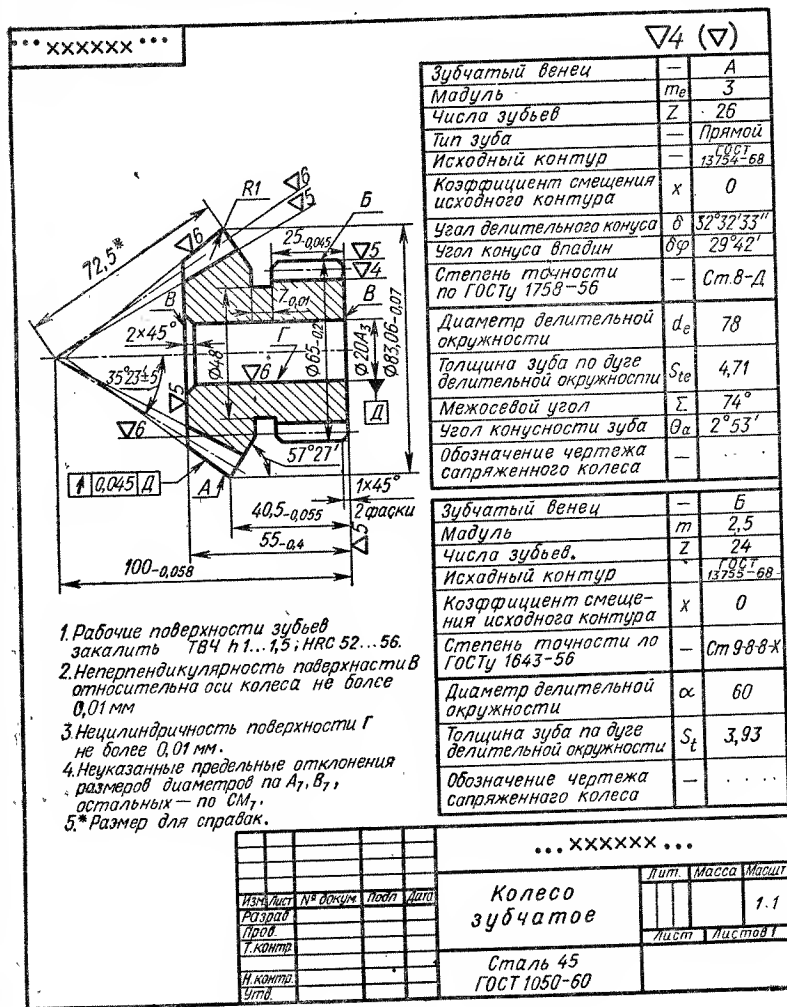 ... xxxxxx ...
▽4 (▽)
Зубчатый венец — А
Мадуль mₑ 3
Числа зубьев Z 26
Тип зуба — Прямой
Исходный контур — ГОСТ 13754-68
Коэффициент смещения
исходного контура x 0
Угал делительного конуса δ 32°32'33"
Угол конуса впадин δφ 29°42'
Степень точности
по ГОСТу 1758-56 — Ст.8-Д
Диаметр делительной
окружности dₑ 78
Толщина зуба по дуге
делительной окружности Sₜₑ 4,71
Межосевой угол Σ 74°
Угол конусности зуба θₐ 2°53'
Обозначение чертежа
сапряженного колеса —
Зубчатый венец — Б
Мадуль m 2,5
Числа зубьев. Z 24
Исхадный контур ГОСТ 13755-68
Коэффициент смеще-
ния исходного контура x 0
Степень точности ло
ГОСТу 1643-56 — Ст 9-8-8-X
Диаметр делительной
окружности α 60
Толщина зуба па дуге
делительной окружности Sₜ 3,93
Обозначение чертежа
сапряженнаго колеса — . . . .
72,5*
▽6
▽6
▽5
R1
Б
25-0,045
▽5
▽4
В
7-0,01
В
2×45°
Г
35°23'±5'
Ф48
▽6
Ф65-0,2
Ф20А₃
Ф83,06-0,07
▽5
Д
▽6
57°27'
0,045 Д
А
40,5-0,055
1×45°
2 фаски
55-0,4
▽5
100-0,058
1. Рабочие поверхности зубьев
закалить ТВЧ h 1...1,5; HRC 52...56.
2. Неперпендикулярность паверхности В
относительна оси колеса не более
0,01 мм
3. Нецилиндричность поверхности Г
не более 0,01 мм.
4. Неуказанные предельные отклонения
размеров диаметров па А₇, В₇,
остальных — по СМ₇.
5.* Размер для справак.
... xxxxxx ...
Изм. Лист № докум Подп Дата
Разраб
Пров.
Т.контр
Н.контр.
Утв.
Колесо
зубчатое
Лит. Масса Масшт
1:1
Лист Листов 1
Сталь 45
ГОСТ 1050-60